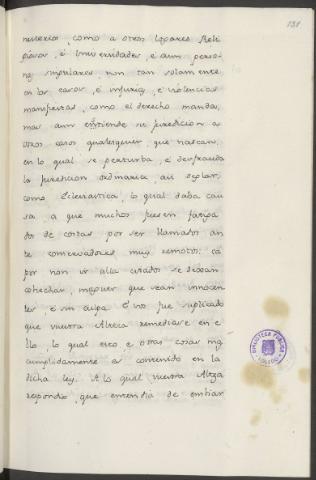 131
nesterios, como a otros logares Reli
giosos, é Universidades, é aun perso
nas singulares, non tan solamente
en los casos, é injurias, é violencias
manifiestas, como el derecho manda,
mas aun entiende su jurediccion a
otros casos qualesquier, que nascan,
en lo qual se perturba, é defrauda
la juredicion ordinaria, asi seglar,
como Eclesiastica, lo qual daba cau
sa, a que muchos fuesen fatiga
dos de costas por ser llamados an
te conservadores muy remotos: ca
por non ir alla citados se dexan
cohechar, maguer que sean innocen
tes, é sin culpa. É nos fue suplicado
que vuestra Alteza remediase en e
llo, lo qual esto é otras cosas mas
cumplidamente es contenido en la
dicha ley. A lo qual vuestra Alteza
respondió, que entendia de embiar
BIBLIOTECA PUBLICA
TOLEDO